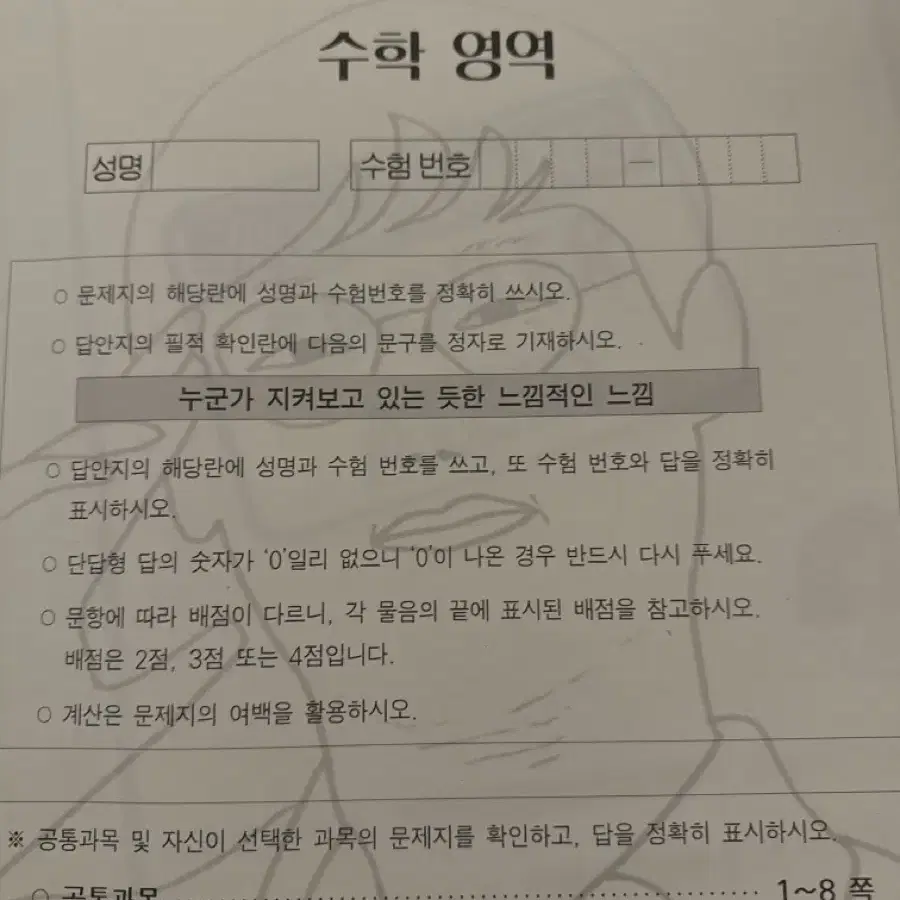 수학 영역
성명
수험 번호 —
○ 문제지의 해당란에 성명과 수험번호를 정확히 쓰시오.
○ 답안지의 필적 확인란에 다음의 문구를 정자로 기재하시오.
누군가 지켜보고 있는 듯한 느낌적인 느낌
○ 답안지의 해당란에 성명과 수험 번호를 쓰고, 또 수험 번호와 답을 정확히
표시하시오.
○ 단답형 답의 숫자가 ‘0’일리 없으니 ‘0’이 나온 경우 반드시 다시 푸세요.
○ 문항에 따라 배점이 다르니, 각 물음의 끝에 표시된 배점을 참고하시오.
배점은 2점, 3점 또는 4점입니다.
○ 계산은 문제지의 여백을 활용하시오.
※ 공통과목 및 자신이 선택한 과목의 문제지를 확인하고, 답을 정확히 표시하시오.
○ 공통과목 ........................................ 1~8 쪽